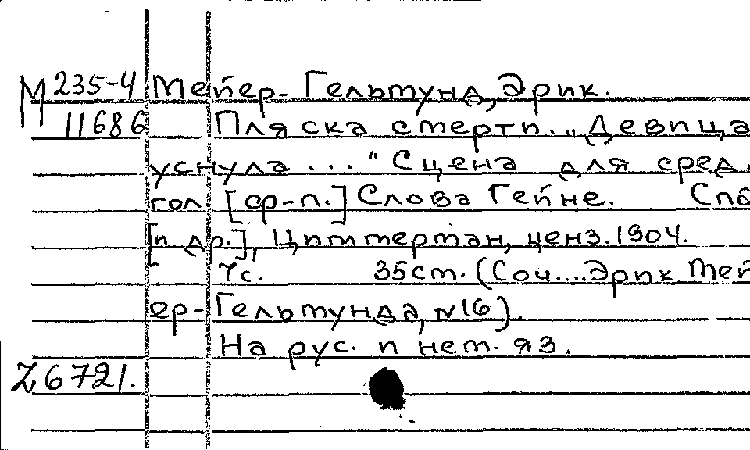 М 235-4 Мейер-Гельмунд, Эрик.
11686 Пляска смерти. „Девица
уснула..." Сцена для сред.
гол. [ф-п.] Слова Гейне. Спб
[и др.], Циммерман, ценз. 1904.
7с. 35см. (Соч... Эрик Мей
ер-Гельмунда, №16).
На рус. и нем. яз.
Z 6721.